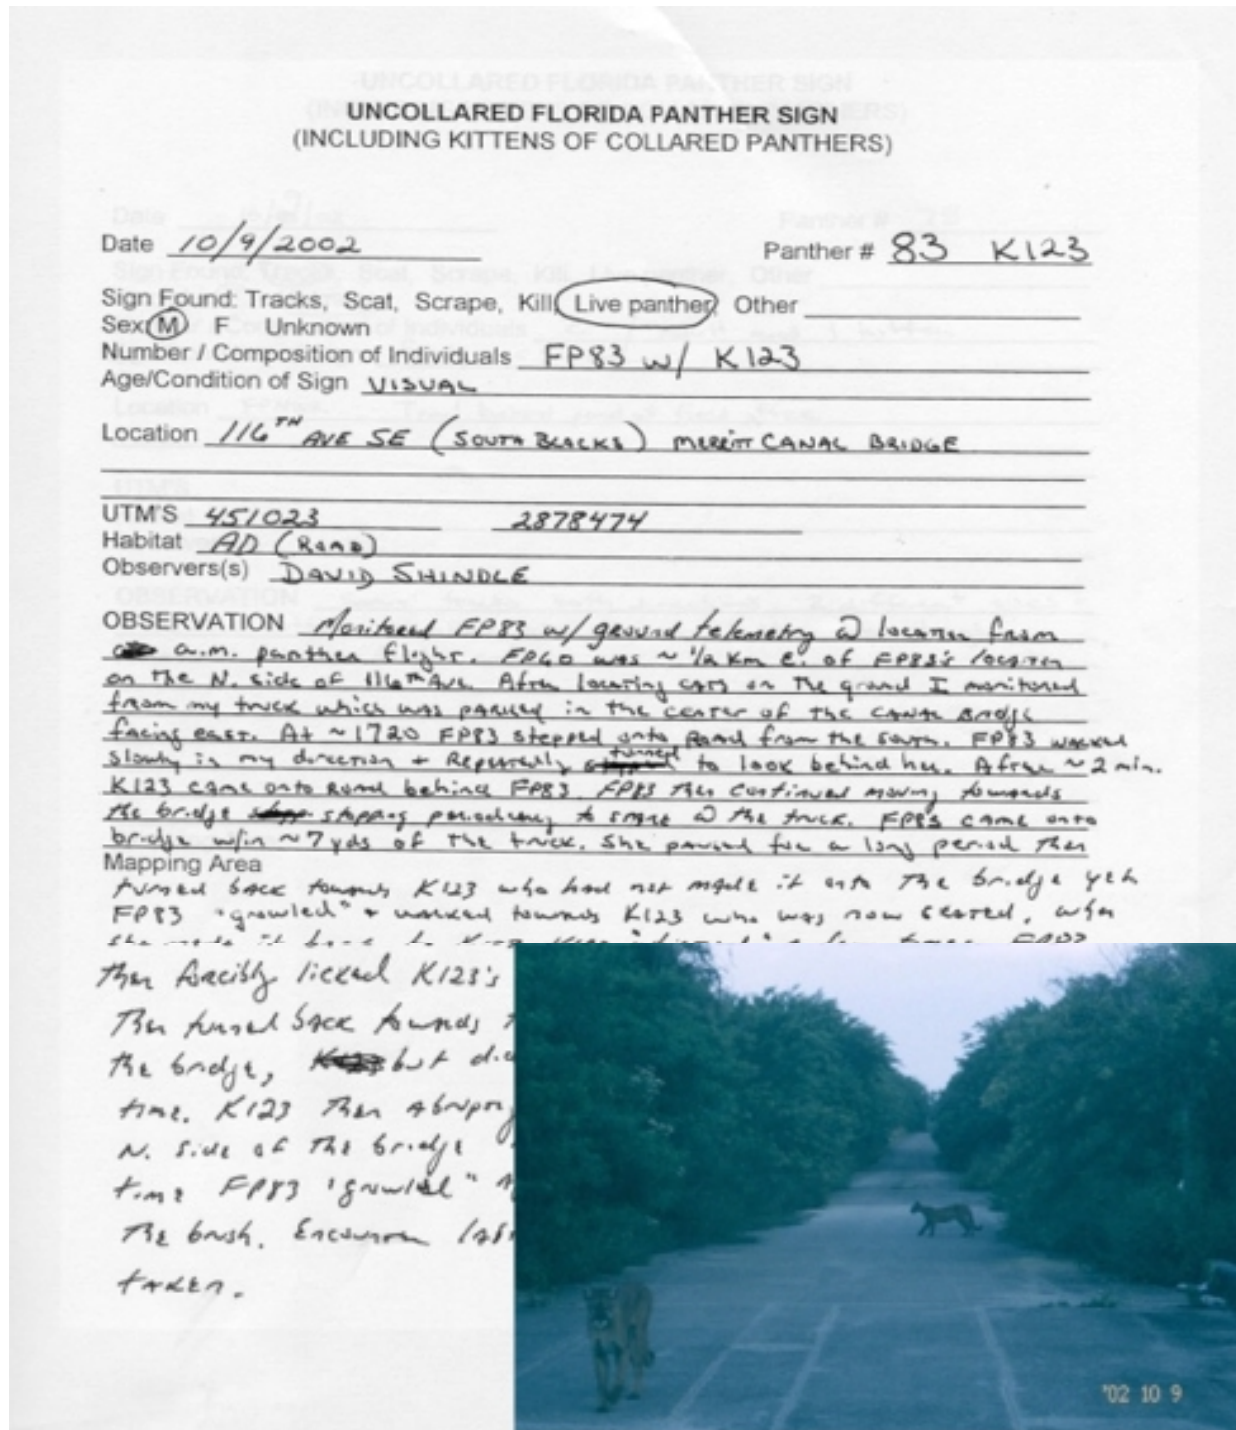 UNCOLLARED FLORIDA PANTHER SIGN
(INCLUDING KITTENS OF COLLARED PANTHERS)
Date 10/9/2002 Panther # 83 K123
Sign Found: Tracks, Scat, Scrape, Kill, Live panther, Other
Sex: M F Unknown
Number / Composition of Individuals FP83 w/ K123
Age/Condition of Sign VISUAL
Location 116TH AVE SE (SOUTH BLACKS) MERRITT CANAL BRIDGE
UTM'S 451023 2878474
Habitat AD (ROAD)
Observers(s) DAVID SHINDLE
OBSERVATION Monitored FP83 w/ ground telemetry @ location from
a.m. panther flight. FP60 was ~ 1/2 Km E. of FP83's location
on the N. side of 116th Ave. After locating cats on the ground I monitored
from my truck which was parked in the center of the canal bridge
facing east. At ~1720 FP83 stepped onto Road from the south. FP83 walked
slowly in my direction + Repeatedly turned to look behind her. After ~ 2 min.
K123 came onto Road behind FP83. FP83 then continued moving towards
the bridge stopping periodically to stare @ the truck. FP83 came onto
bridge w/in ~7 yds of the truck. She paused for a long period then
Mapping Area
turned back towards K123 who had not made it onto the bridge yet
FP83 "growled" + walked towards K123 who was now seated, when
she made it back to K123
then forcibly licked K123's
Then turned back towards
the bridge, but
time. K123 then
N. side of the bridge
time FP83 "growled"
the brush. Encounter
taken.
'02 10 9